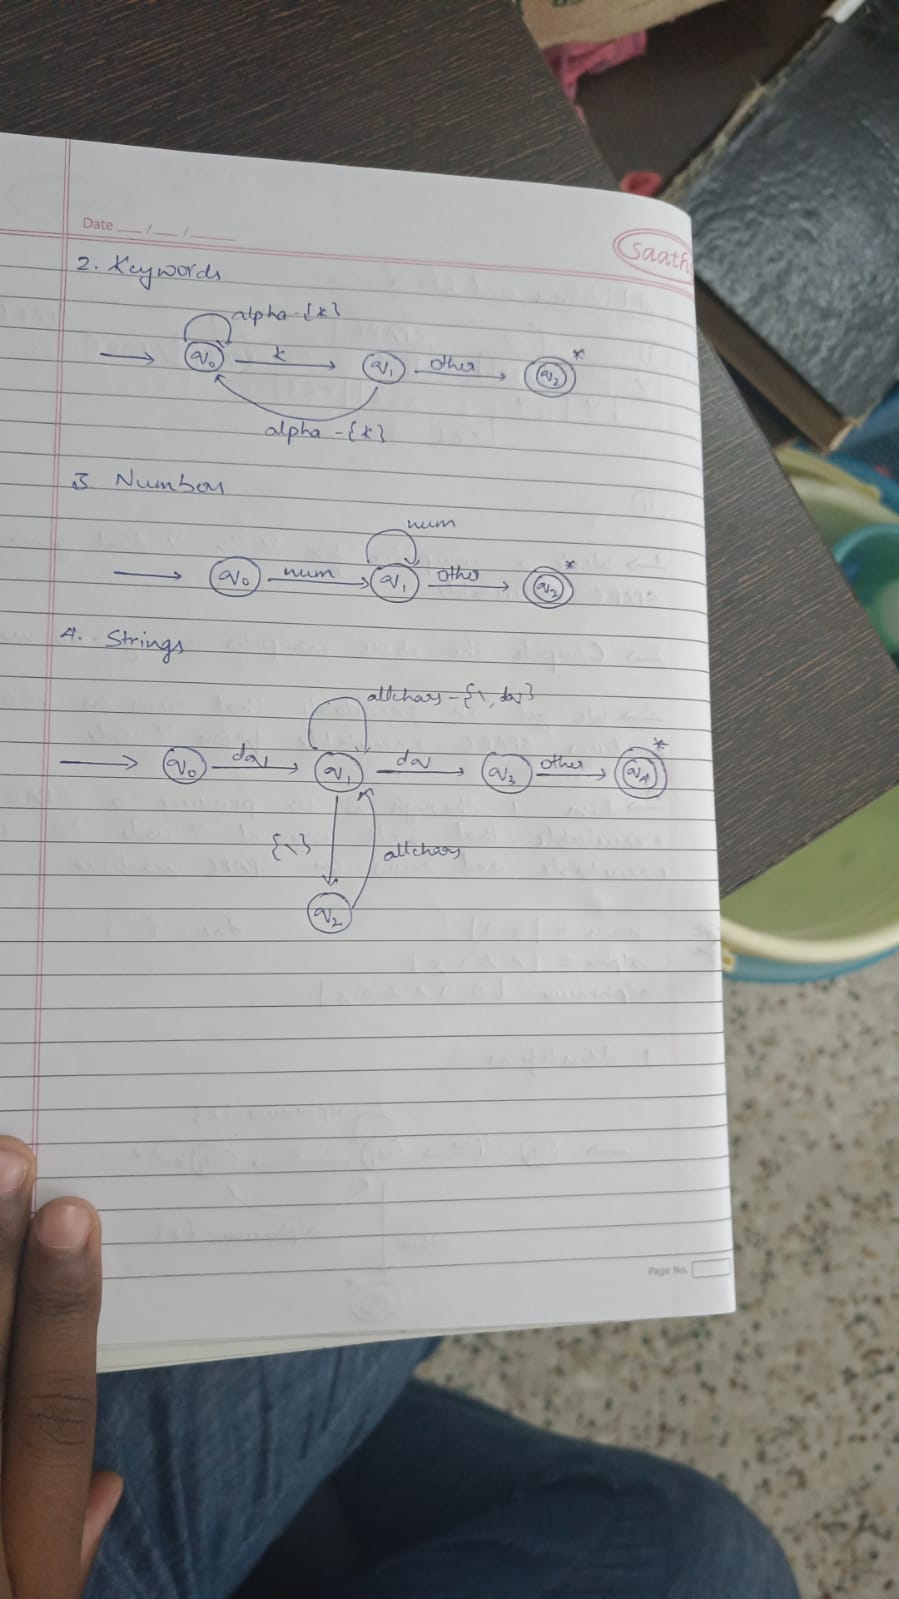 Date __/__/____
Saath
2. Keywords
alpha-{k}
q0 k q1 other q2 *
alpha-{k}
3. Numbers
num
q0 num q1 other q2 *
4. Strings
allchars-{\, dq}
q0 dq q1 dq q3 other q4 *
{\} allchars
q2
Page No.